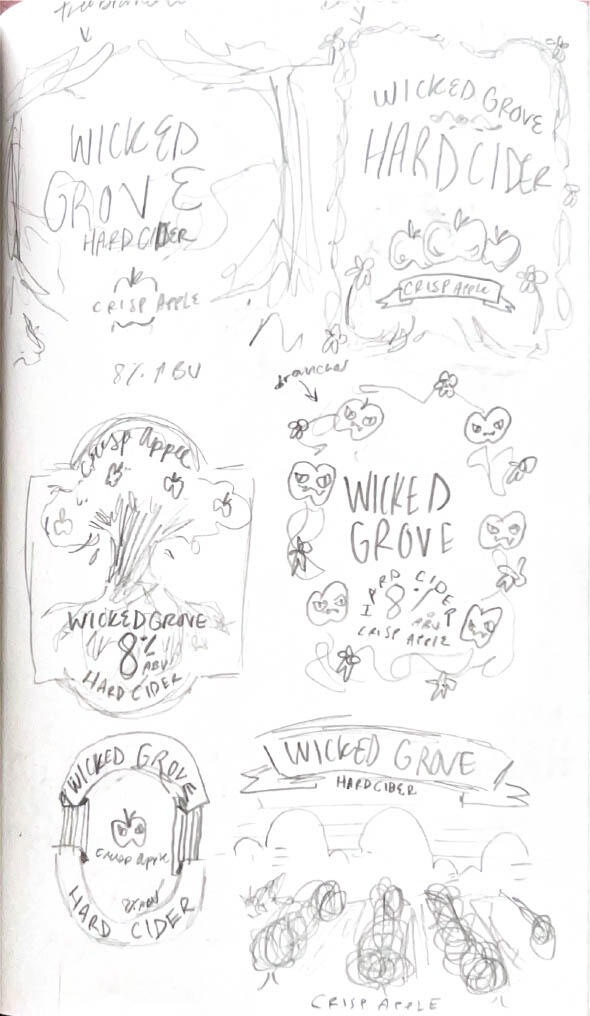 WICKED
GROVE
HARD CIDER
CRISP APPLE
8% ABV
WICKED GROVE
HARD CIDER
CRISP APPLE
crisp Apple
WICKED GROVE
8%
ABV
HARD CIDER
branches
WICKED
GROVE
HARD CIDER
8%
ABV
CRISP APPLE
WICKED GROVE
crisp apple
8% ABV
HARD CIDER
WICKED GROVE
HARD CIDER
CRISP APPLE